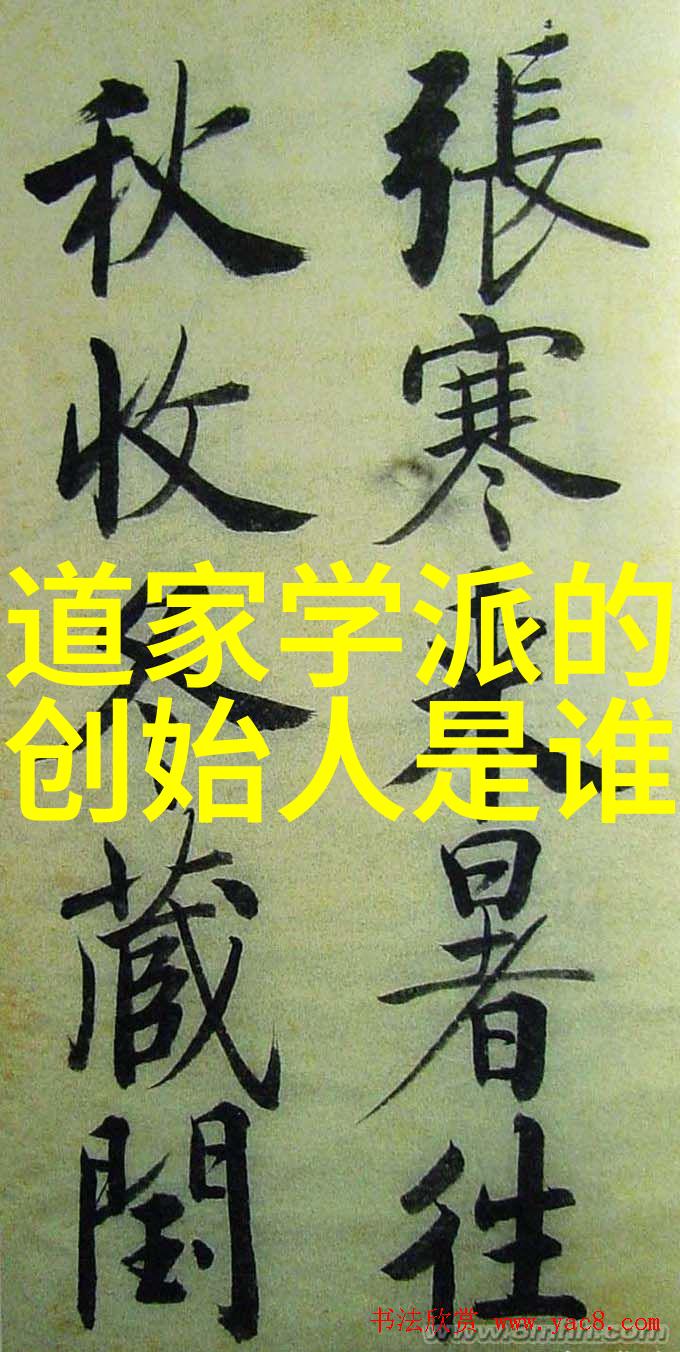 張寒来暑往
秋收冬蔵閏
道家学派的
创始人是谁
书法欣赏 www.yac8.com